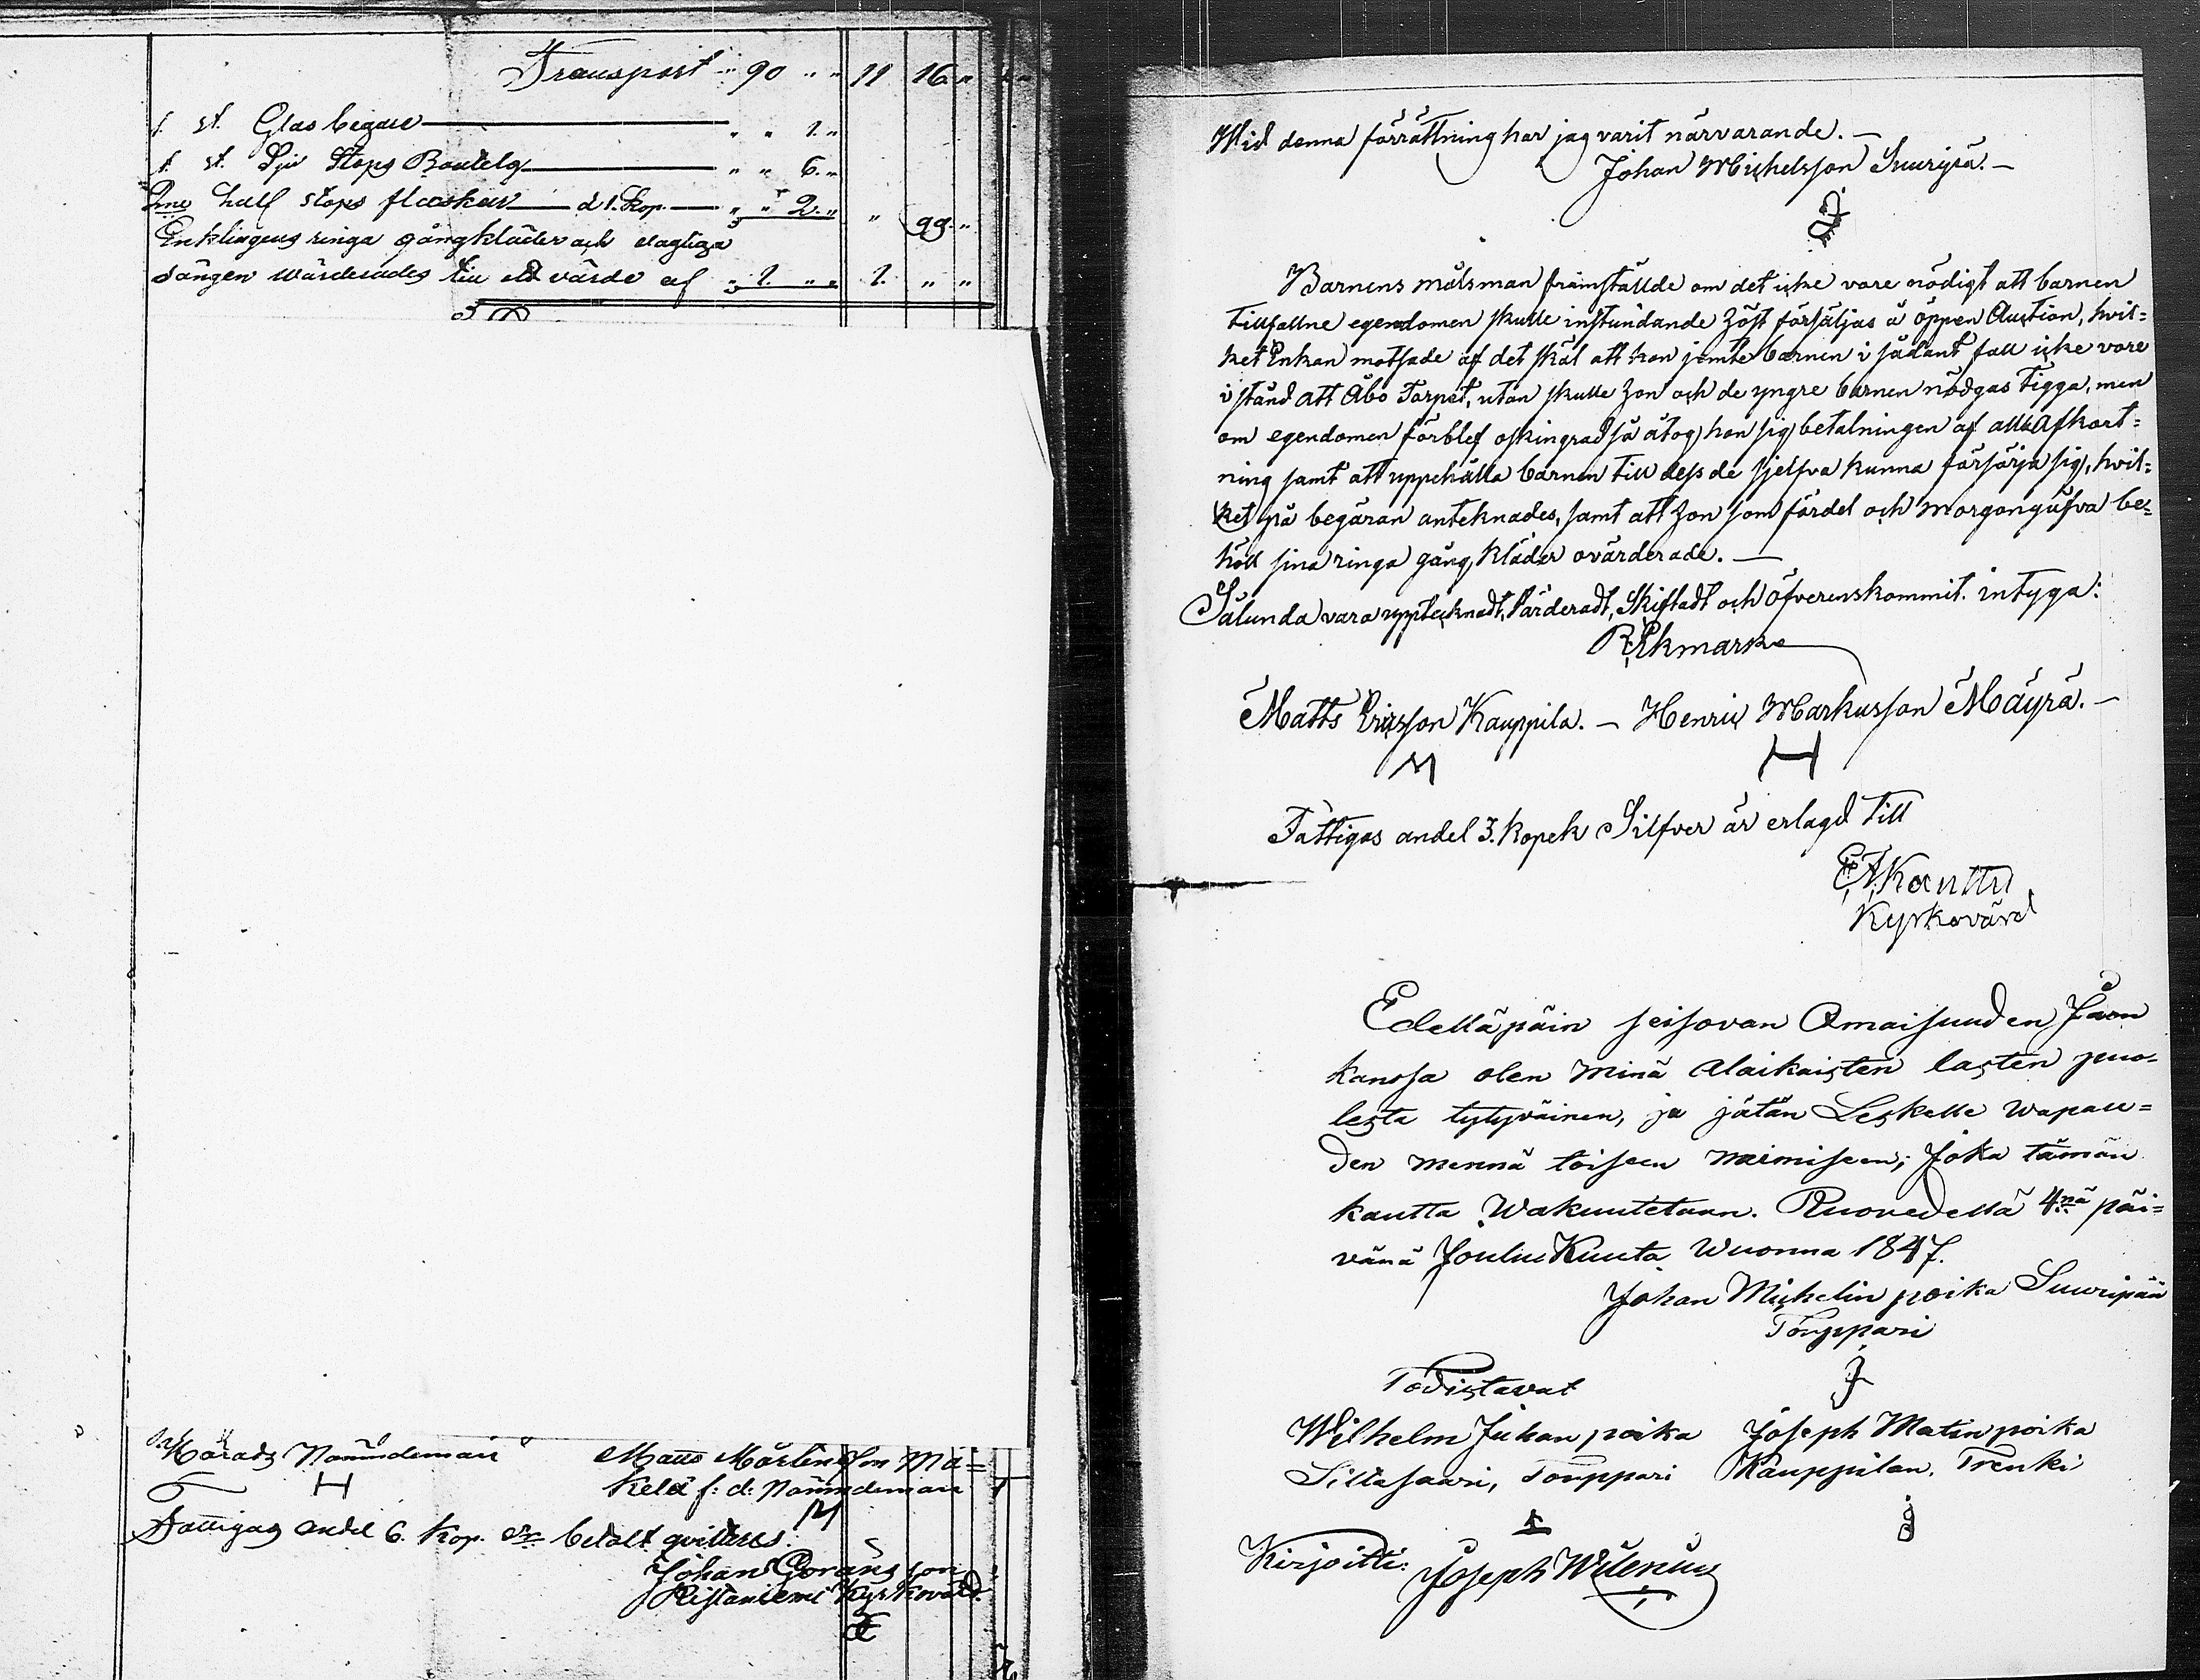 Transport " 90 " " 11 16 "
1. st. Glas begare " " 1. "
1. st. Stops Boutelg " " 6. "
half stops flaskor á 1. Kop. " " 2. " " 99. "
Enklingens ringa gångkläder och dagliga
sängen wärderades till ett värde af " 1. " " 1. " "
Härads Nämndeman
H
Matts Mårtensson Mä=
kelä f: d: Nämndeman
M
Fattigas andel 6. Kop. är betalt qvitteras.
Johan Göransson
Ristaniemi Kyrkovärd.
Wid denna förrättning har jag varit närvarande. —
Johan Michelsson Suuripä. —
Barnens målsman framställde om det icke vore nödigt att barnen
tillfallne egendomen skulle instundande höst försäljas å öppen Auction, hvil=
ket Enkan motsade af det skäl att hon jemte barnen i sådant fall icke vore
i stånd att Åbo Torpet, utan skulle hon och de yngre barnen nödgas tigga, men
om egendomen förblef oskingrad så åtog hon sig betalningen af alla Afkort=
ning samt att uppehålla barnen till dess de sjelfva kunna försörja sig, hvil=
ket på begäran anteknades, samt att hon som fördel och morgongåfva be=
höll sina ringa gång kläder ovärderade. —
Sålunda vara upptecknadt, Värderadt, Skiftadt och öfverenskommit. intyga:
R Ekmark
Matts Ericsson Kauppila. — Henric Markusson Mäyrä. —
M H
Fattigas andel 3. Kopek Silfver är erlagd till
Kauttu
Kyrkovärd
Edelläpäin seisovan Omaisuuden Jaon
kanssa olen minä alaikaisten lasten puo=
lesta tytyväinen, ja jätän Leskelle wapau=
den mennä toiseen naimiseen; Joka tämän
kautta Wakuutetaan. Ruovedellä 4nä päi=
vänä JouluKuuta Wuonna 1847.
Johan Michelin poika Suuripää
Torppari
Todistavat
Wilhelm Juhan poika Joseph Matin poika
Siltasaari, Torppari Kauppilan, Trenki
Kirjoitti: Joseph Wilenius